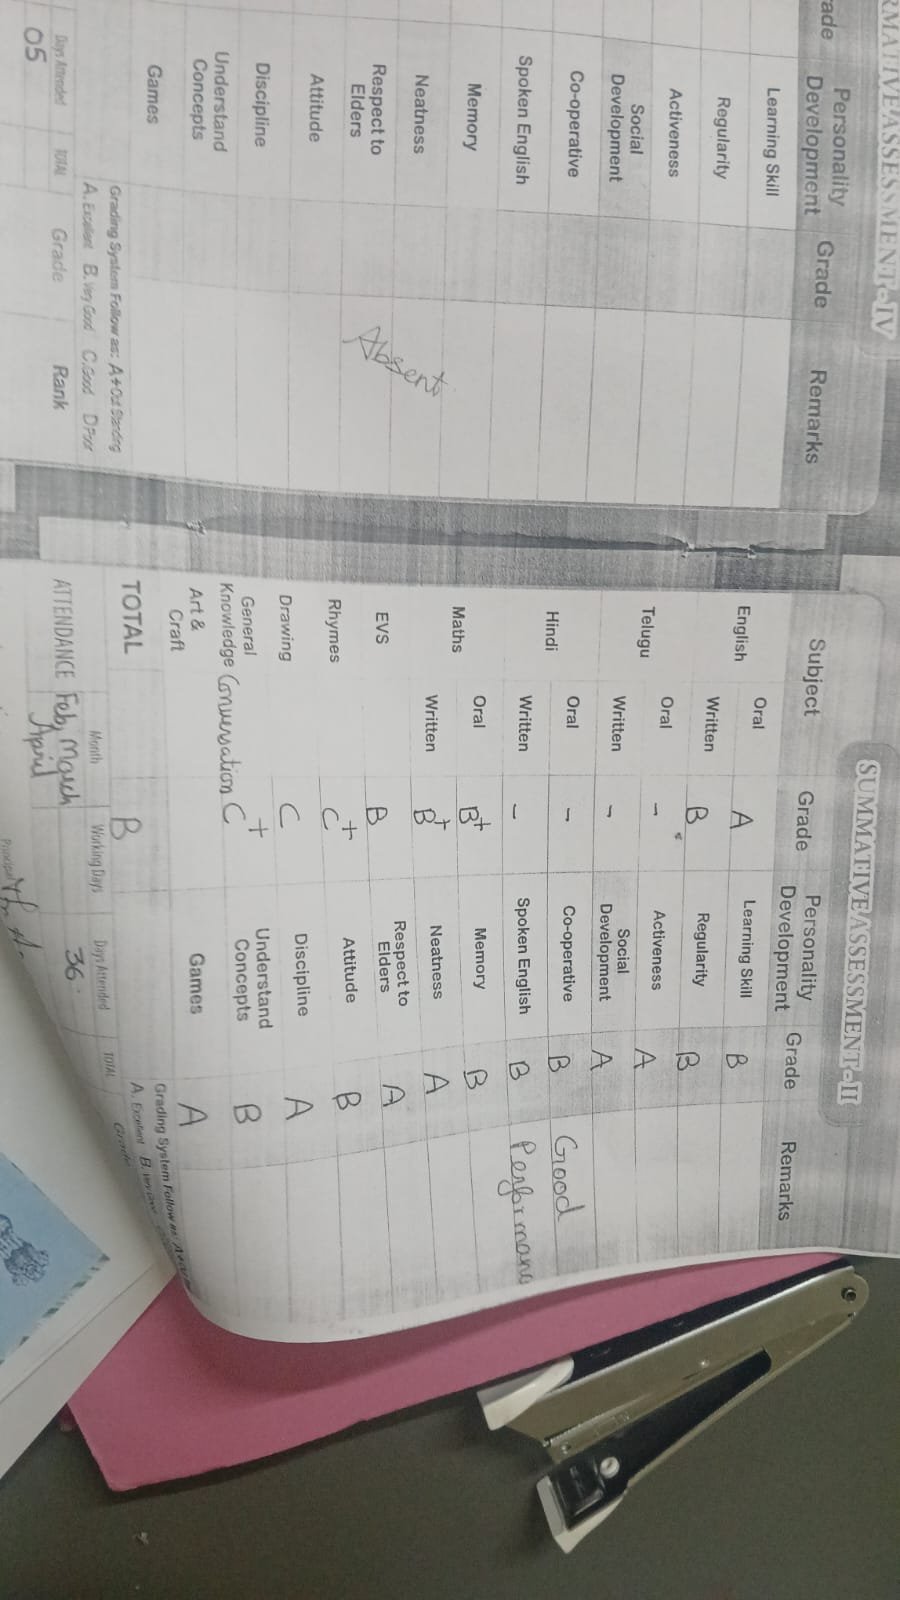 RMATIVE ASSESSMENT-IV
rade Personality Development Grade Remarks
Learning Skill
Regularity
Activeness
Social Development
Co-operative
Spoken English
Memory
Neatness
Respect to Elders
Attitude
Discipline
Understand Concepts
Games
Absent
Grading System Follow as: A+Out Standing
A. Excellent B. Very Good C.Good D Poor
Days Attended TOTAL Grade Rank
05
SUMMATIVE ASSESSMENT-II
Subject Grade Personality Development Grade Remarks
English Oral A Learning Skill B
Written B Regularity B
Telugu Oral - Activeness A
Written - Social Development A
Hindi Oral - Co-operative B Good
Written - Spoken English B Performanc
Maths Oral B+ Memory B
Written B+ Neatness A
EVS B Respect to Elders A
Rhymes C+ Attitude B
Drawing C Discipline A
General Knowledge Conversation C+ Understand Concepts B
Art & Craft Games A
TOTAL B
Grading System Follow as:
A. Excellent B. Very
Month Working Days Days Attended TOTAL Grade
ATTENDANCE Feb, March April 36
Principal